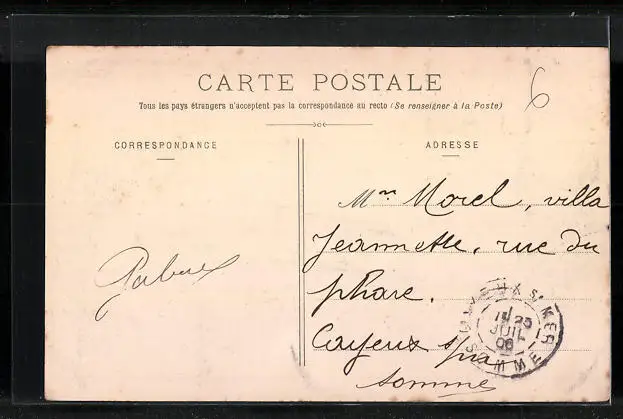 CARTE POSTALE
Tous les pays étrangers n'acceptent pas la correspondance au recto (Se renseigner à la Poste)
6
CORRESPONDANCE
ADRESSE
Mr Morel, villa
Jeannette, rue du
phare.
Cayeux s/
somme
CAYEUX S/MER
23
JUIL
06
SOMME